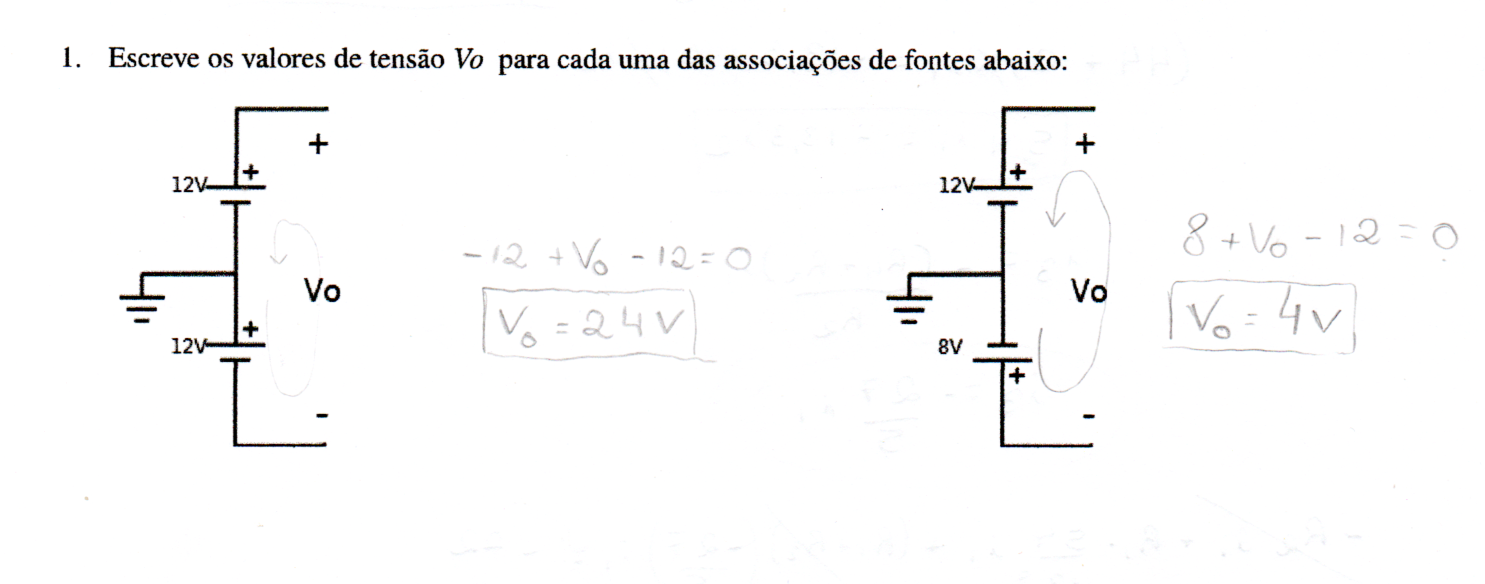 1. Escreve os valores de tensão Vo para cada uma das associações de fontes abaixo:
+
12V
+
Vo
12V
+
-
-12 + Vo - 12 = 0
Vo = 24V
+
12V
+
Vo
8V
+
-
8 + Vo - 12 = 0
Vo = 4V